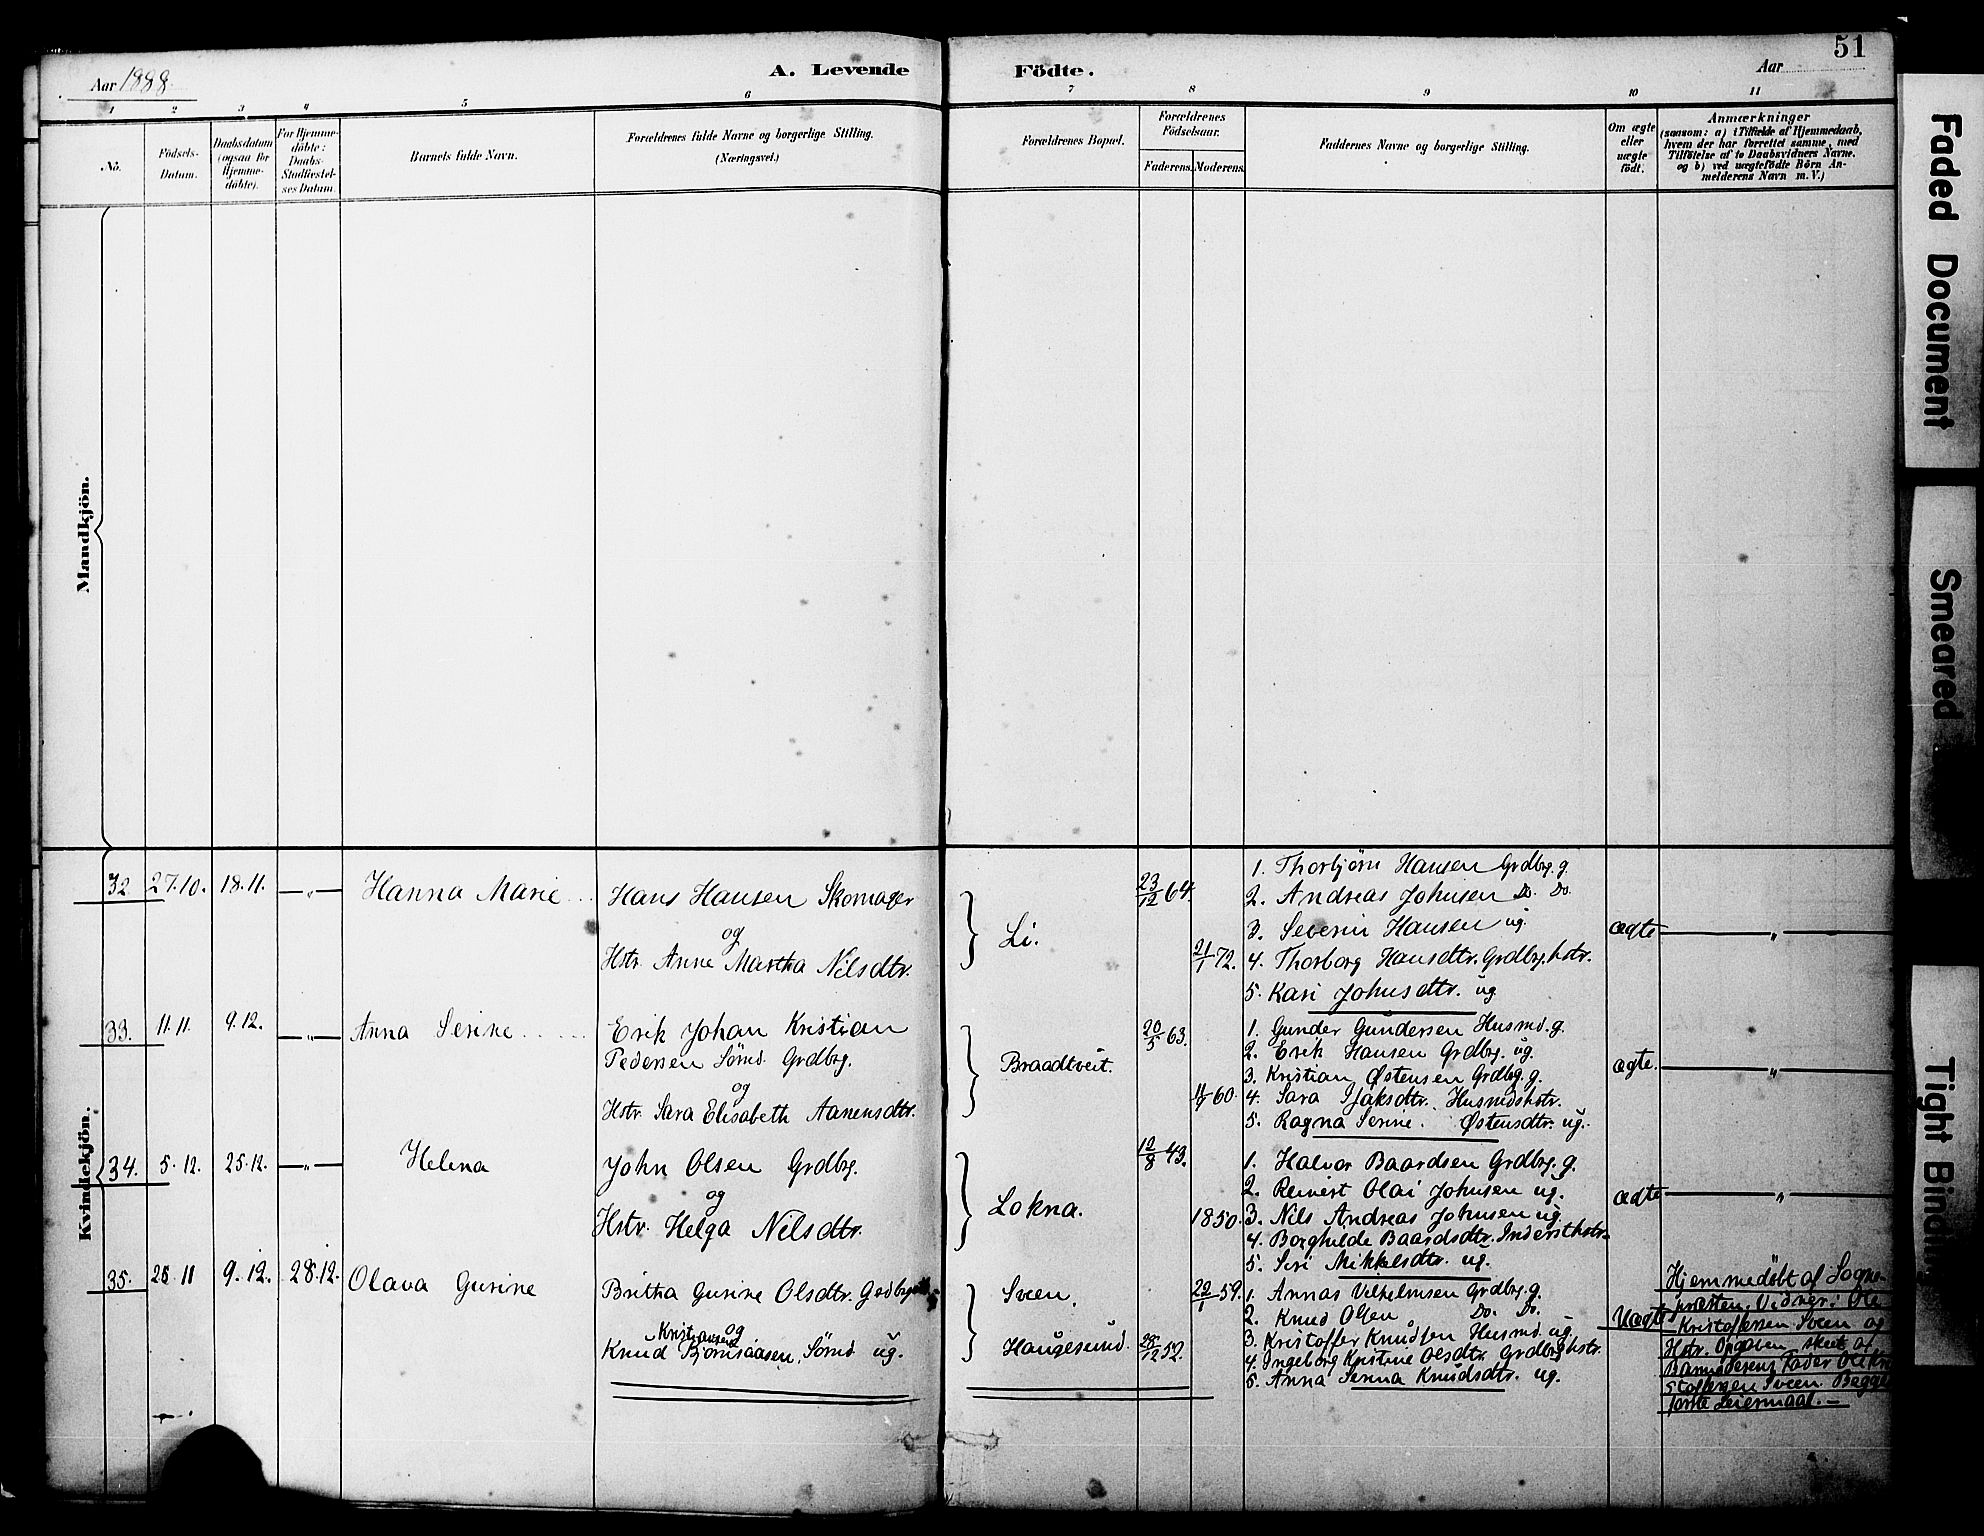 51
Aar 1888
A. Levende Födte.
Aar
1 2 3 4 5 6 7 8 9 10 11
No.
Födsels-
Datum.
Daabsdatum
(ogsaa for
Hjemme-
döbte).
For Hjemme-
döbte:
Daabs-
Stadfæstel-
ses Datum.
Barnets fulde Navn.
Forældrenes fulde Navne og borgerlige Stilling.
(Næringsvei.)
Forældrenes Bopæl.
Forældrenes
Födselsaar.
Faderens. Moderens.
Faddernes Navne og borgerlige Stilling.
Om ægte
eller
uægte
født.
Anmærkninger
(saasom: a) i Tilfælde af Hjemmedaab,
hvem der har forrettet samme, med
Tilföielse af to Daabsvidners Navne,
og b) ved uægtefödte Börn An-
melderens Navn m. V.)
Mandkjön.
Kvindekjön.
32 27.10. 18.11. —„— Hanna Marie
Hans Hansen Skomager
og
Hstr. Anne Martha Nilsdtr.
Li.
23/12 64.
21/1 72.
1. Thorbjörn Hansen Grdbrg. g.
2. Andreas Johnsen Do. Do.
3. Severin Hansen ug.
4. Thorborg Hansdtr. Grdbrg.hstr.
5. Kari Johnsdtr. ug.
ægte
„
33. 11.11. 9.12. —„— Anna Serine
Erik Johan Kristian
Pedersen Sømd. Grdbrg.
og
Hstr. Sara Elisabeth Aanensdtr.
Braadtveit.
20/5 63.
60.
1. Gunder Gundersen Husmd. g.
2. Erik Hansen Grdbrg. ug.
3. Kristian Østensen Grdbrg. g.
4. Sara Isaksdtr. Husmdshstr.
5. Ragna Serine Østensdtr. ug.
ægte.
„
34. 5.12. 25.12. —„— Helena
John Olsen Grdbrg.
og
Hstr. Helga Nilsdtr.
Lokna.
12/8 43.
1850.
1. Halvor Baardsen Grdbrg. g.
2. Reinert Olai Johnsen ug.
3. Nils Andreas Johnsen ug.
4. Borghilde Baardsdtr. Indersthstr.
5. Siri Mikkelsdtr. ug.
ægte
„
35. 25.11 9.12. 28.12. Olava Gurine
Britha Gurine Olsdtr.
og
Kristiansen
Knud Bjørnsaasen, Sømd ug.
Sveen.
Haugesund.
22/1 59.
28/12 52.
1. Annas Vilhelmsen Grdbrg. g.
2. Knud Olsen Do. Do.
3. Kristoffer Knudsen Husmd. ug.
4. Ingeborg Kristine Olsdtr. Grdbrghstr.
5. Anna Serina Knudsdtr. ug.
Uægte
Hjemmedøbt af Sogne-
præsten. Vidner: Ole
Kristoffersen Sveen og
Hstr. Opgaven skeet af
Barnemoderens Fader Ole Kri
stoffersen Sveen. Begges
første Leiermaal.—
Faded Document
Smeared
Tight Binding